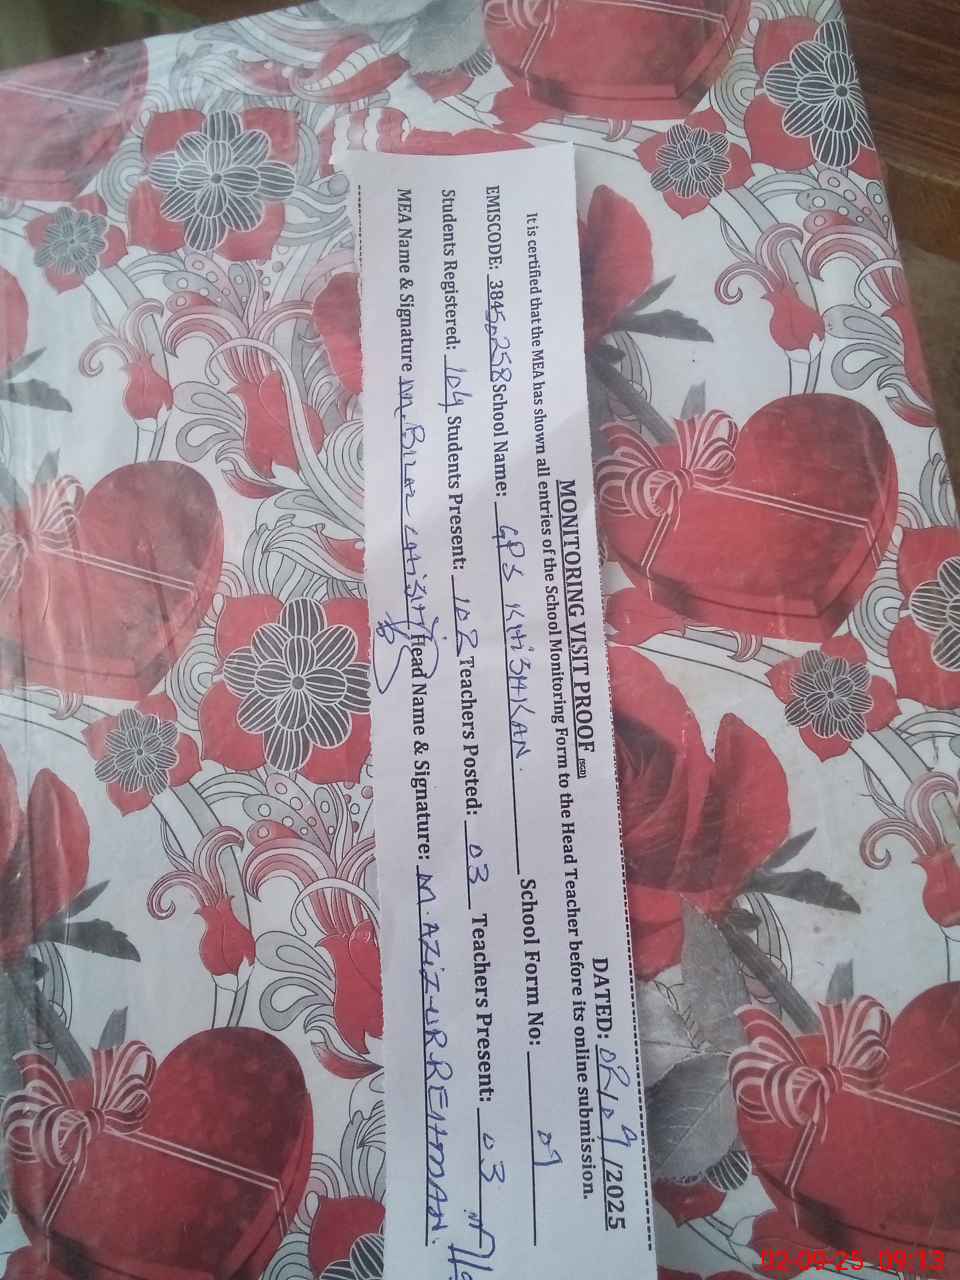 MONITORING VISIT PROOF (SGD) DATED: 02/09/2025
It is certified that the MEA has shown all entries of the School Monitoring Form to the Head Teacher before its online submission.
EMISCODE: 38450258 School Name: GPS KHI3HKAN. School Form No: 09
Students Registered: 104 Students Present: 102 Teachers Posted: 03 Teachers Present: 03
MEA Name & Signature M. Head Name & Signature: M. AZIZ-UR-REHMAN.
02-09-25 09:13